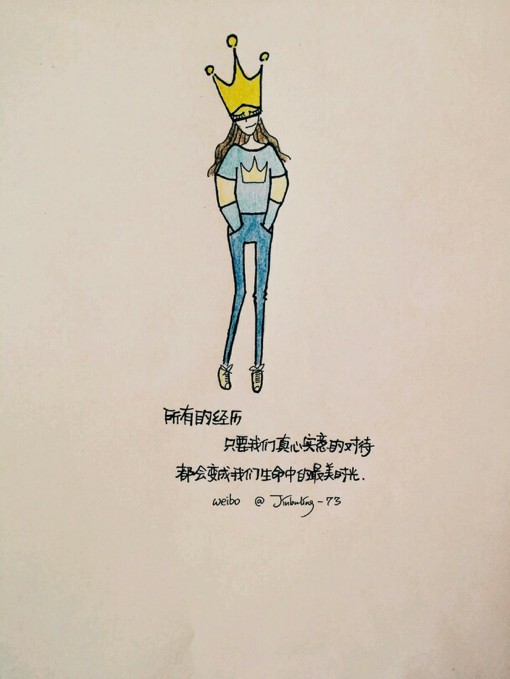 所有的经历
只要我们真心实意的对待
都会变成我们生命中的最美时光.
weibo @ -73